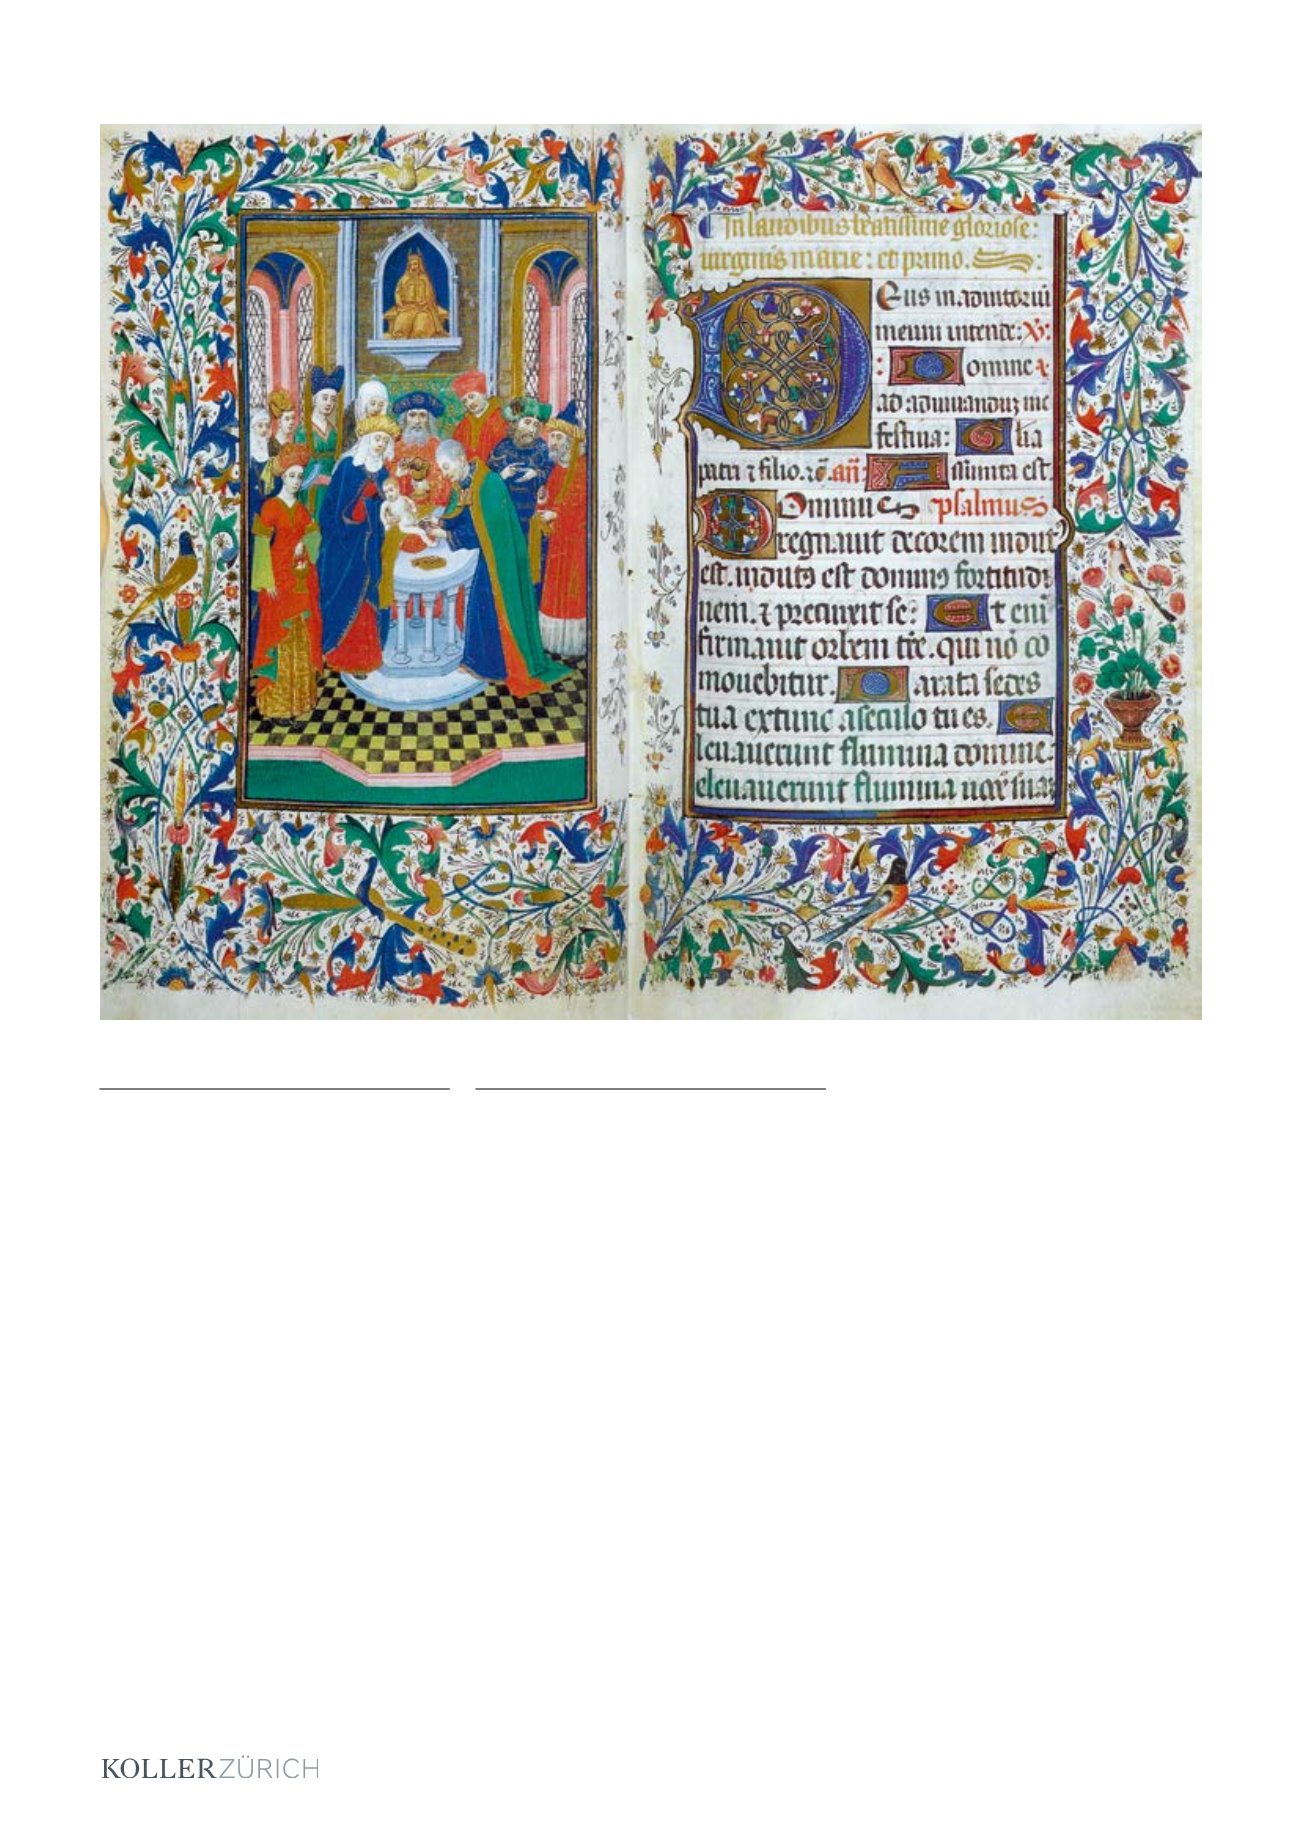 In laudibus beatissime gloriose:
virginis marie: et primo.
Deus in adiutoriū
meum intende: ℟:
Domine a
ad adiuuanduz me
festina: Glia
patri ⁊ filio. añ: Assumta est
Dominus psalmus
regnauit decorem indut
est. indutꝰ est dominꝰ fortitudi
nem. ⁊ precinxit se: Et eni
firmauit orbem tre. qui nō co
mouebitur. Parata sedes
tua extunc a seculo tu es. E
leuauerunt flumina domine.
eleuauerunt flumina uocē suaʒ
KOLLERZÜRICH